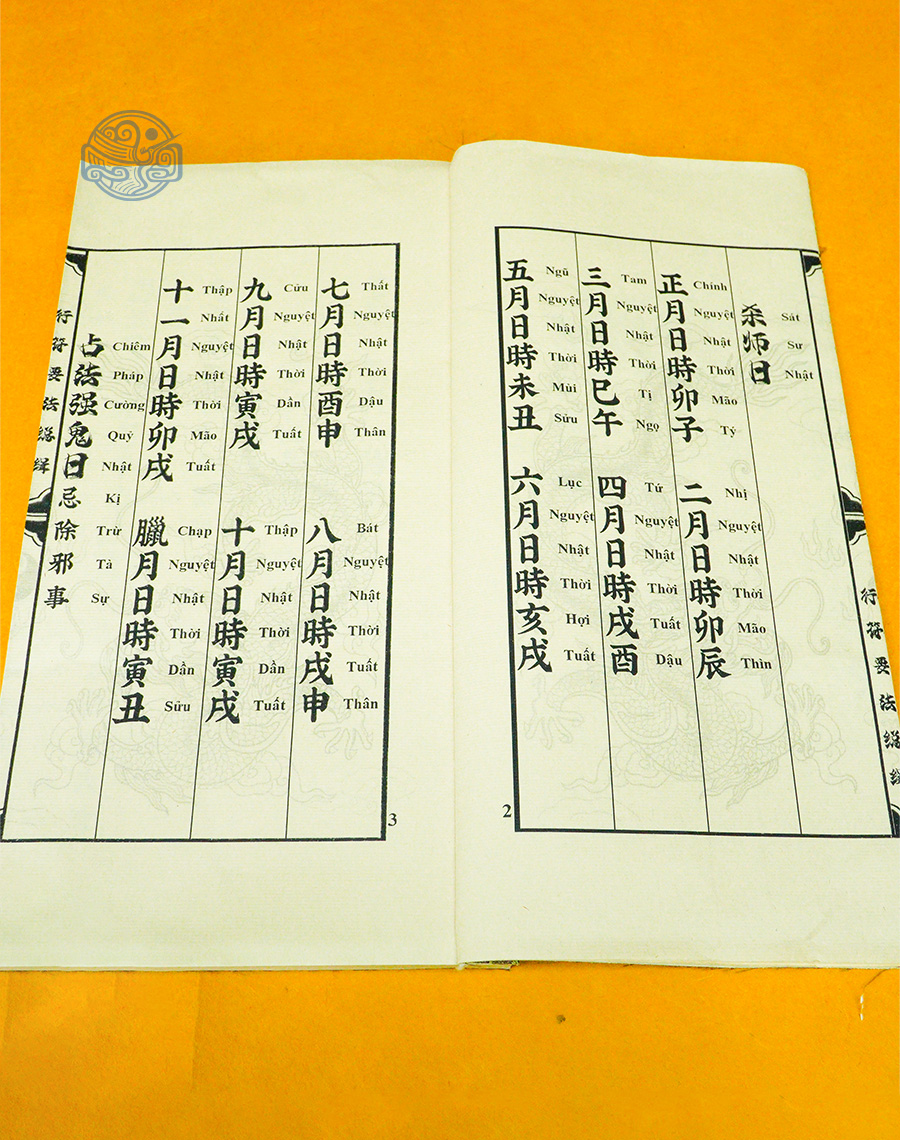 杀师日
Sát Sư Nhật
正月日時卯子
Chính Nguyệt Nhật Thời Mão Tý
二月日時卯辰
Nhị Nguyệt Nhật Thời Mão Thìn
三月日時巳午
Tam Nguyệt Nhật Thời Tị Ngọ
四月日時戌酉
Tứ Nguyệt Nhật Thời Tuất Dậu
五月日時未丑
Ngũ Nguyệt Nhật Thời Mùi Sửu
六月日時亥戌
Lục Nguyệt Nhật Thời Hợi Tuất
行符要法
2
七月日時酉申
Thất Nguyệt Nhật Thời Dậu Thân
八月日時戌申
Bát Nguyệt Nhật Thời Tuất Thân
九月日時寅戌
Cửu Nguyệt Nhật Thời Dần Tuất
十月日時寅戌
Thập Nguyệt Nhật Thời Dần Tuất
十一月日時卯戌
Thập Nhất Nguyệt Nhật Thời Mão Tuất
臘月日時寅丑
Chạp Nguyệt Nhật Thời Dần Sửu
占法强鬼日忌除邪事
Chiêm Pháp Cường Quỷ Nhật Kị Trừ Tà Sự
行符要法
3